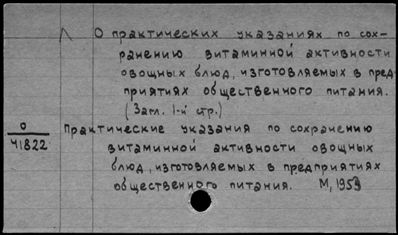 О практических указаниях по сох-
ранению витаминной активности
овощных блюд, изготовляемых в пред-
приятиях общественного питания.
(Загл. 1-й стр.)
О
41822
Практические указания по сохранению
витаминной активности овощных
блюд, изготовляемых в предприятиях
общественного питания. М, 1953